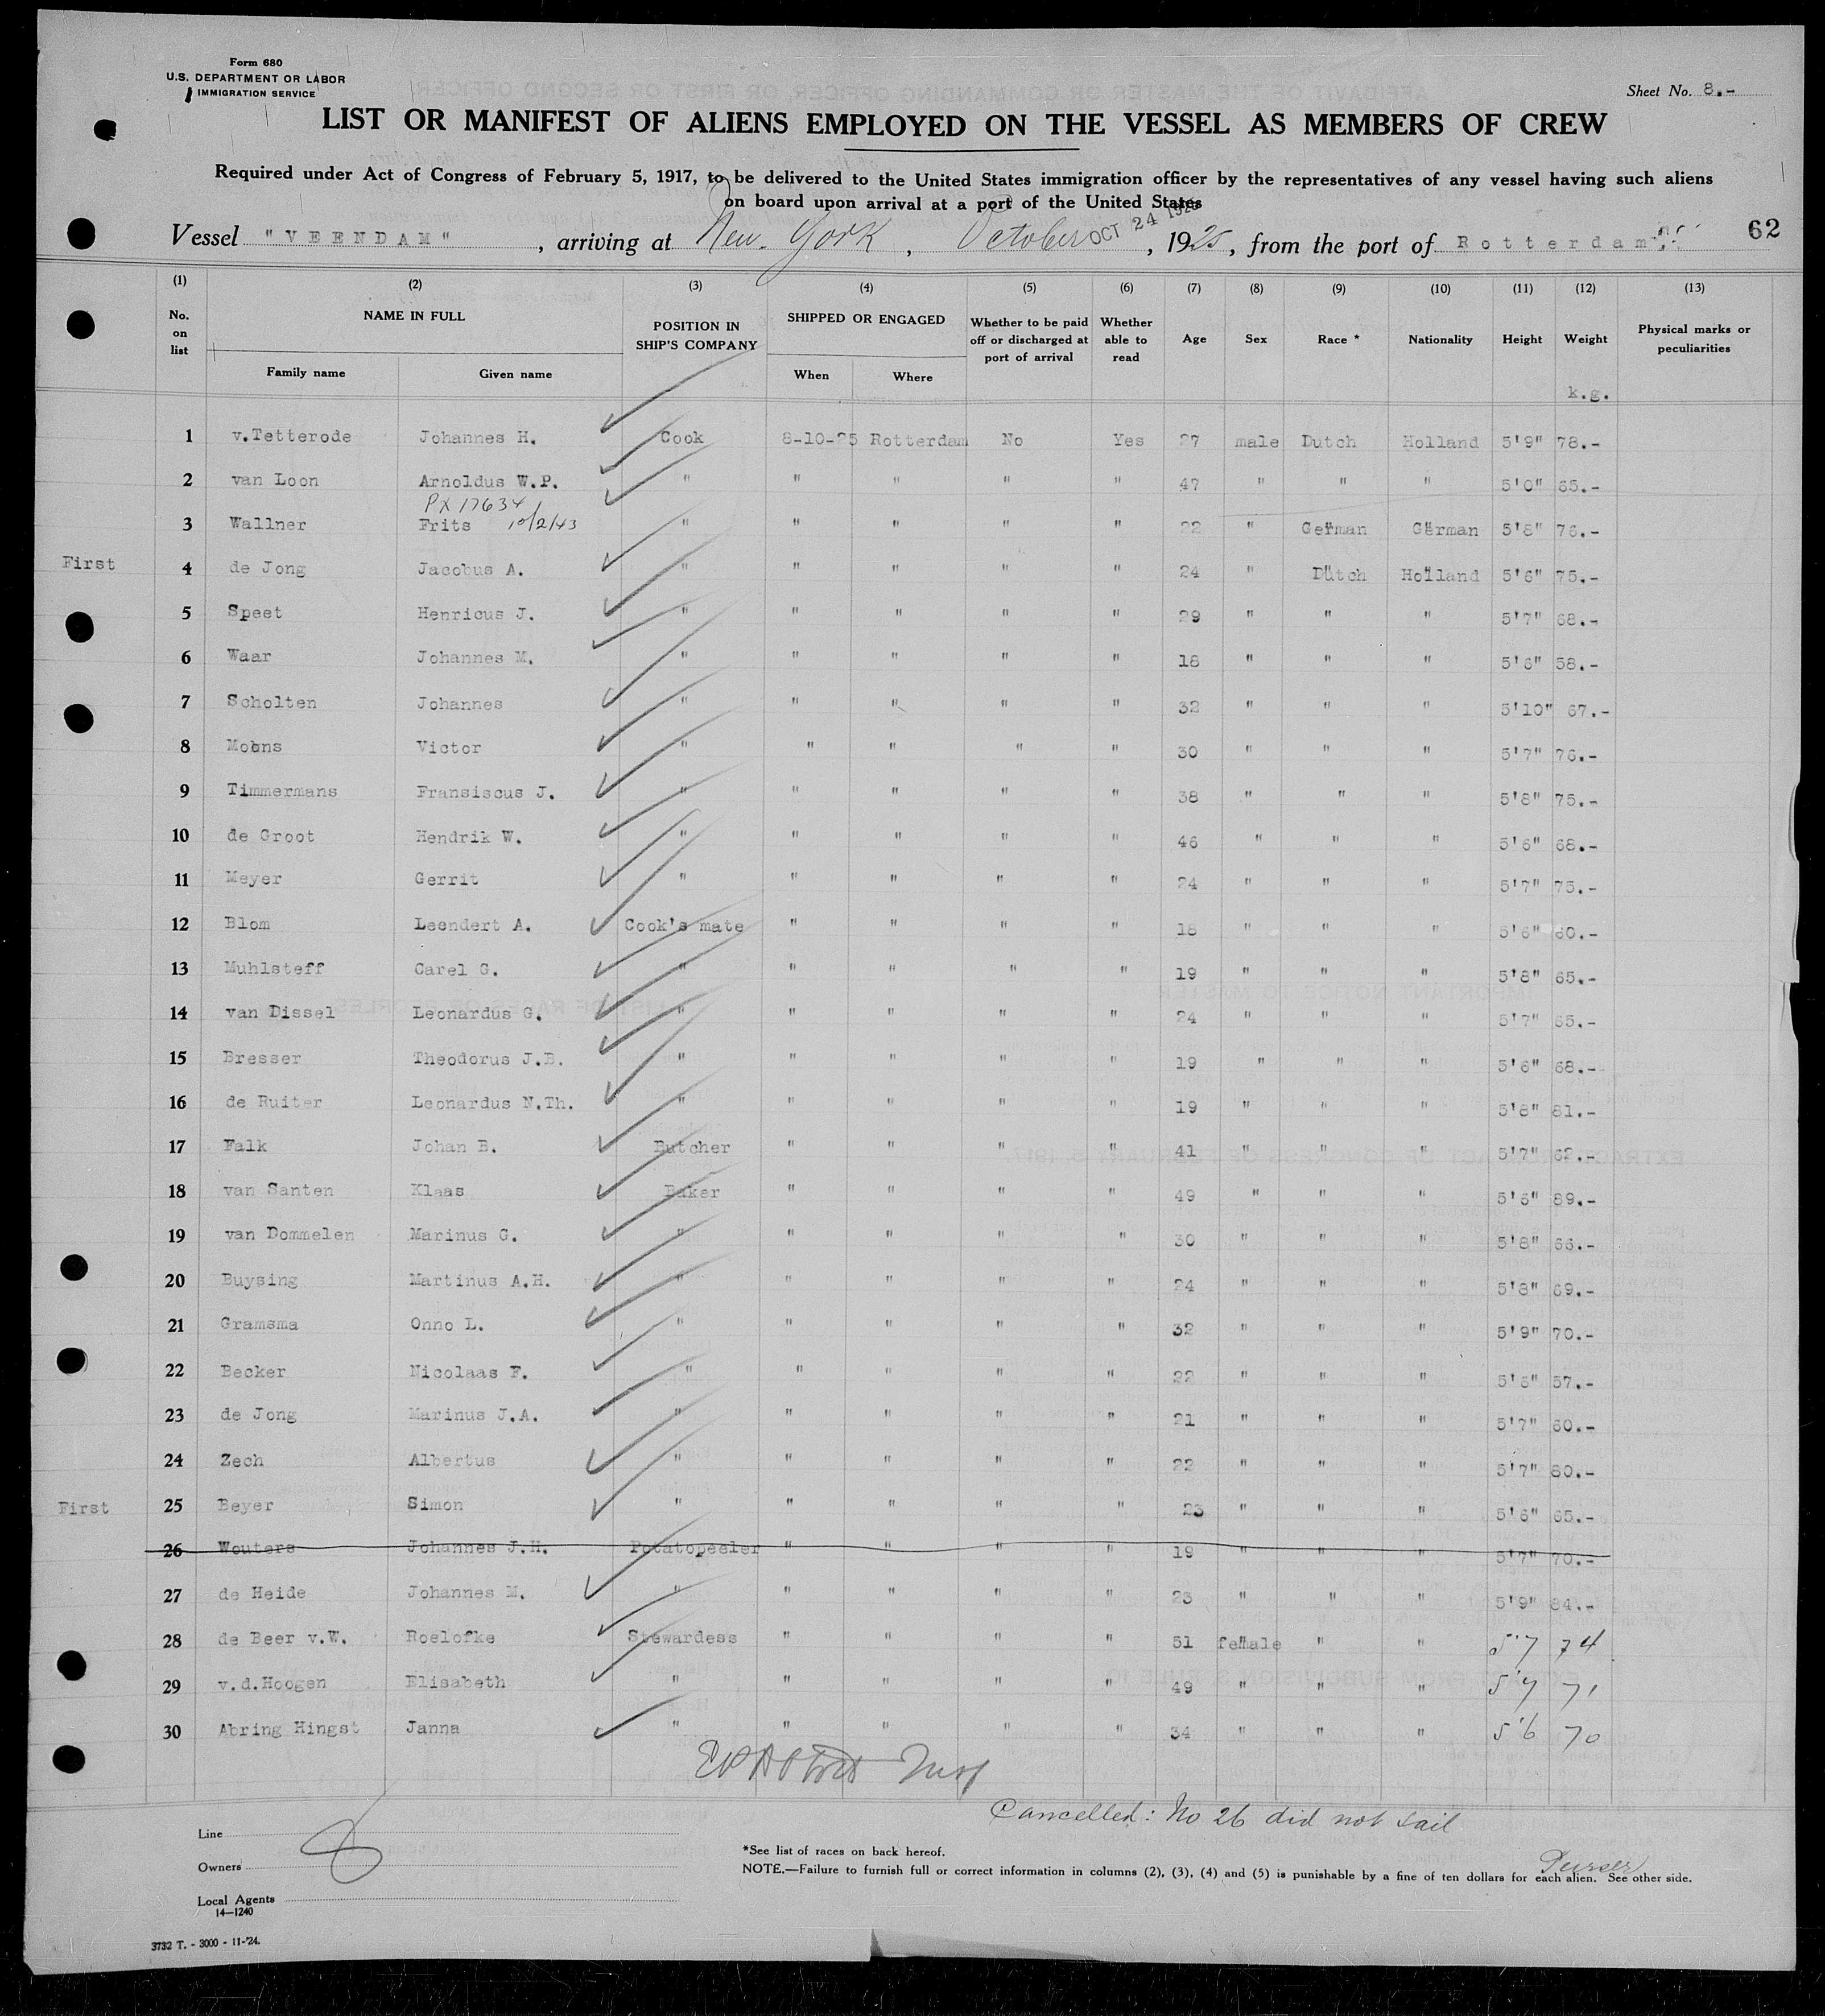 Form 680
U.S. DEPARTMENT OR LABOR
IMMIGRATION SERVICE
Sheet No. 8.-
LIST OR MANIFEST OF ALIENS EMPLOYED ON THE VESSEL AS MEMBERS OF CREW
Required under Act of Congress of February 5, 1917, to be delivered to the United States immigration officer by the representatives of any vessel having such aliens
on board upon arrival at a port of the United States
Vessel "VEENDAM", arriving at New-York, October OCT 24 1925, 1925, from the port of Rotterdam
62
(1) (2) (3) (4) (5) (6) (7) (8) (9) (10) (11) (12) (13)
No. on list NAME IN FULL POSITION IN SHIP'S COMPANY SHIPPED OR ENGAGED Whether to be paid off or discharged at port of arrival Whether able to read Age Sex Race * Nationality Height Weight Physical marks or peculiarities
Family name Given name When Where k.g.
1 v.Tetterode Johannes H. Cook 8-10-25 Rotterdam No Yes 27 male Dutch Holland 5'9" 78.-
2 van Loon Arnoldus W.P. " " " " " 47 " " " 5'0" 65.-
PX 17634
3 Wallner Frits 10/2/43 " " " " " 22 " German German 5'8" 76.-
First 4 de Jong Jacobus A. " " " " " 24 " Dutch Holland 5'6" 75.-
5 Speet Henricus J. " " " " " 29 " " " 5'7" 68.-
6 Waar Johannes M. " " " " " 18 " " " 5'6" 58.-
7 Scholten Johannes " " " " " 32 " " " 5'10" 67.-
8 Moons Victor " " " " " 30 " " " 5'7" 76.-
9 Timmermans Fransiscus J. " " " " " 38 " " " 5'8" 75.-
10 de Groot Hendrik W. " " " " " 46 " " " 5'6" 68.-
11 Meyer Gerrit " " " " " 24 " " " 5'7" 75.-
12 Blom Leendert A. Cook's mate " " " " 18 " " " 5'6" 60.-
13 Muhlsteff Carel G. " " " " " 19 " " " 5'8" 65.-
14 van Dissel Leonardus G. " " " " " 24 " " " 5'7" 65.-
15 Bresser Theodorus J.B. " " " " " 19 " " " 5'6" 68.-
16 de Ruiter Leonardus N.Th. " " " " " 19 " " " 5'8" 81.-
17 Falk Johan B. Butcher " " " " 41 " " " 5'7" 62.-
18 van Santen Klaas Baker " " " " 49 " " " 5'5" 89.-
19 van Dommelen Marinus G. " " " " " 30 " " " 5'8" 66.-
20 Buysing Martinus A.H. " " " " " 24 " " " 5'8" 69.-
21 Gramsma Onno L. " " " " " 32 " " " 5'9" 70.-
22 Becker Nicolaas F. " " " " " 22 " " " 5'5" 57.-
23 de Jong Marinus J.A. " " " " " 21 " " " 5'7" 60.-
24 Zech Albertus " " " " " 22 " " " 5'7" 60.-
First 25 Beyer Simon " " " " " 23 " " " 5'6" 65.-
26 Wouters Johannes J.H. Potatopeeler " " " " 19 " " " 5'7" 70.-
27 de Heide Johannes M. " " " " " 23 " " " 5'9" 84.-
28 de Beer v.W. Roelofke Stewardess " " " " 51 female " " 5'7 74
29 v.d.Hoogen Elisabeth " " " " " 49 " " " 5'7 71
30 Abring Hingst Janna " " " " " 34 " " " 5'6 70
Cancelled: No 26 did not sail
Purser
Line
Owners
Local Agents
14—1240
*See list of races on back hereof.
NOTE.—Failure to furnish full or correct information in columns (2), (3), (4) and (5) is punishable by a fine of ten dollars for each alien. See other side.
3732 T. - 3000 - 11-'24.